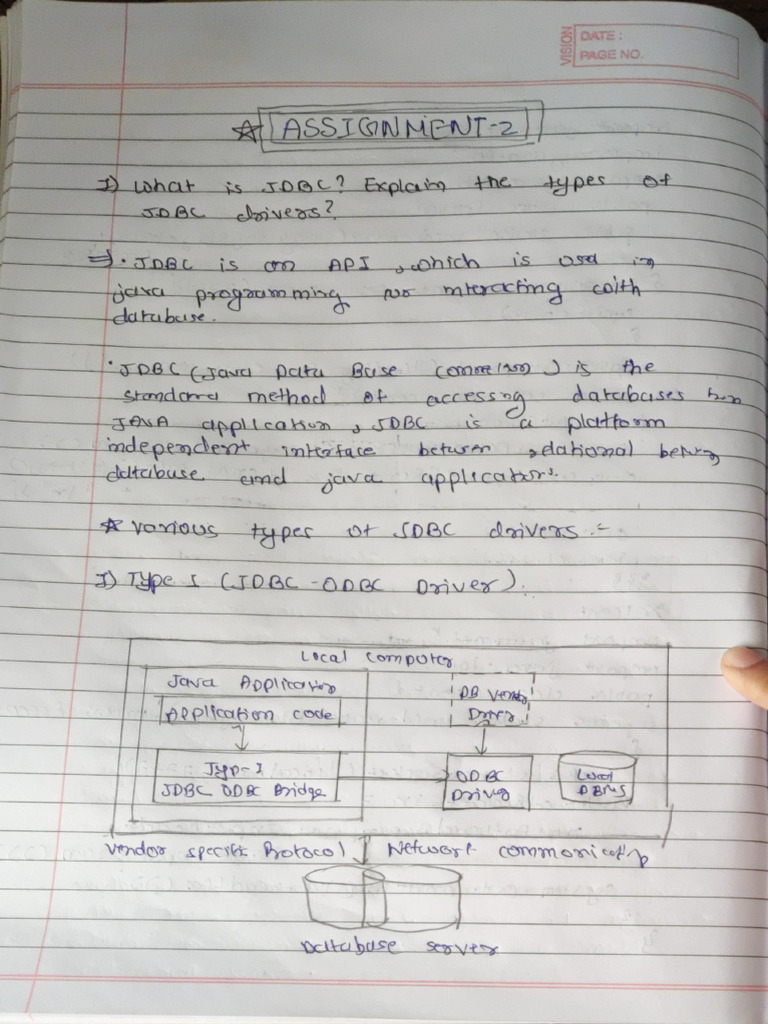 VISION
DATE :
PAGE NO.
ASSIGNMENT-2
1) What is JDBC? Explain the types of
JDBC drivers?
⇒ • JDBC is an API, which is used in
java programming for interacting with
database.
• JDBC (Java Data Base ) is the
standard method of accessing databases from
JAVA application, JDBC is a platform
independent interface between relational
database and java application.
* various types of JDBC drivers :-
1) Type 1 (JDBC-ODBC Driver).
Local Computer
Java Application
Application code
DB
Driver
Typ-I
JDBC ODBC Bridge
ODBC
Driver
Local
DBMS
Vendor specific Protocol
Network
Database server